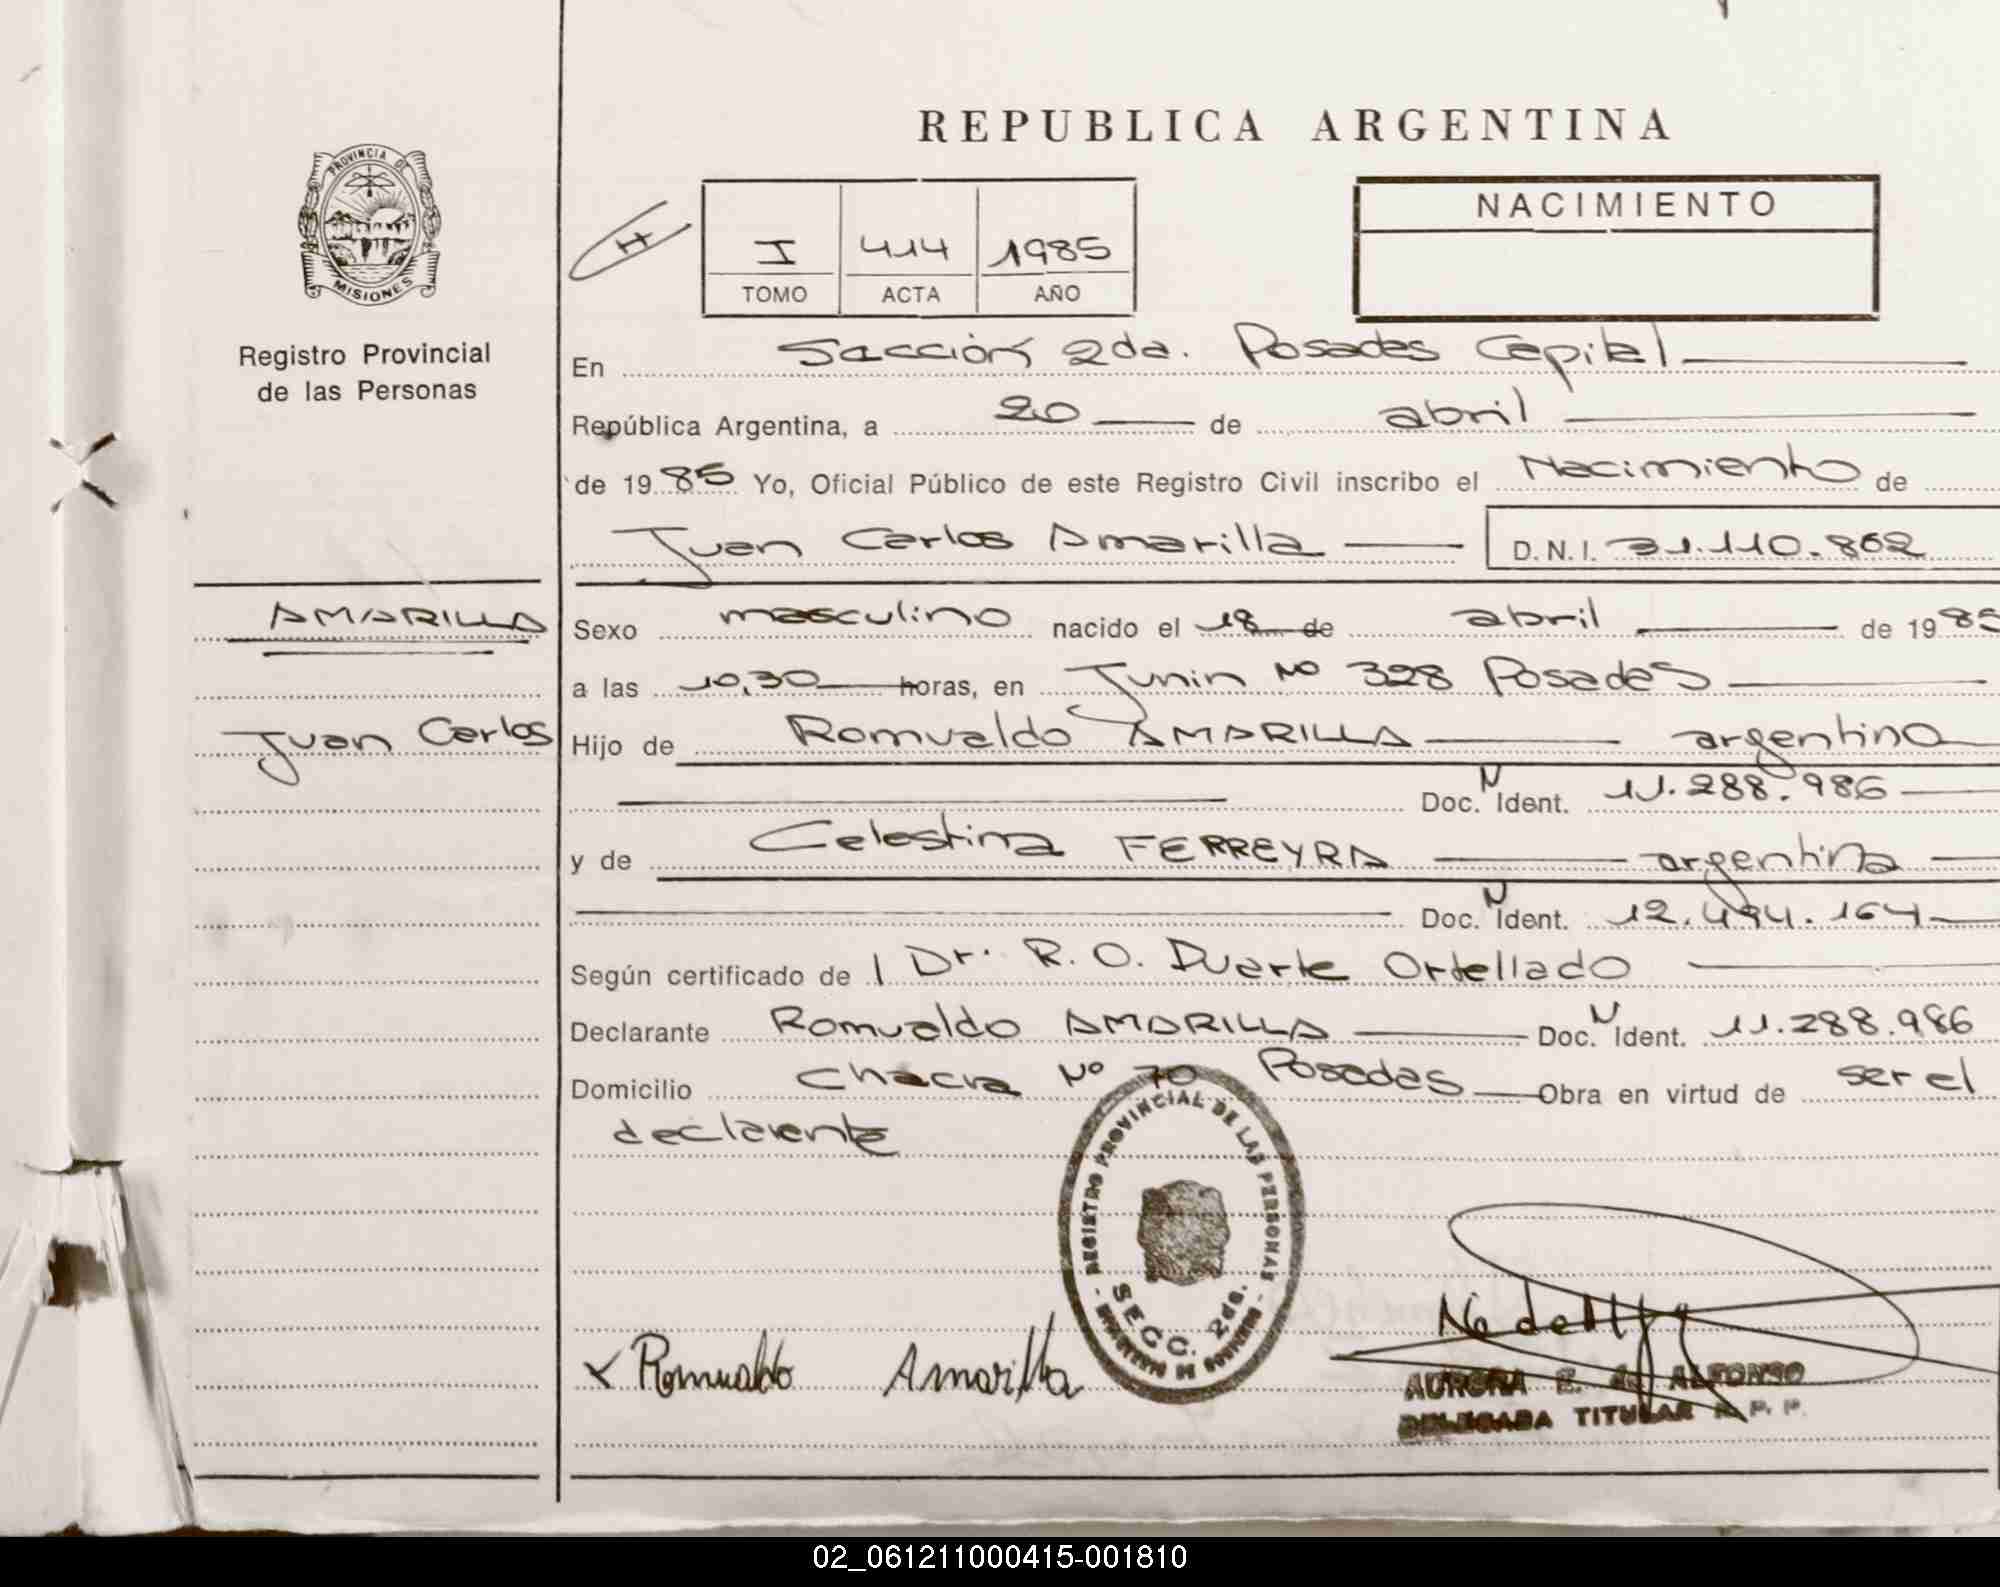 REPUBLICA ARGENTINA
PROVINCIA DE
MISIONES
Registro Provincial
de las Personas
H
I 414 1985
TOMO ACTA AÑO
NACIMIENTO
En Sección 2da. Posadas Capital
República Argentina, a 20 de abril
de 1985 Yo, Oficial Público de este Registro Civil inscribo el Nacimiento de
Juan Carlos Amarilla D.N.I. 31.110.862
AMARILLA
Juan Carlos
Sexo masculino nacido el 18 de abril de 1985
a las 10,30 horas, en Junin Nº 328 Posadas
Hijo de Romualdo AMARILLA argentino
Doc. N Ident. 11.288.986
y de Celestina FERREYRA argentina
Doc. N Ident. 12.494.164
Según certificado de Dr. R. O. Duarte Ortellado
Declarante Romualdo AMARILLA Doc. N Ident. 11.288.986
Domicilio Chacra Nº 70 Posadas Obra en virtud de ser el
declarante
REGISTRO PROVINCIAL DE LAS PERSONAS
SECC. 2da.
Romualdo Amarilla
AURORA E. A. ALFONSO
DELEGADA TITULAR R. P. P.
02_061211000415-001810